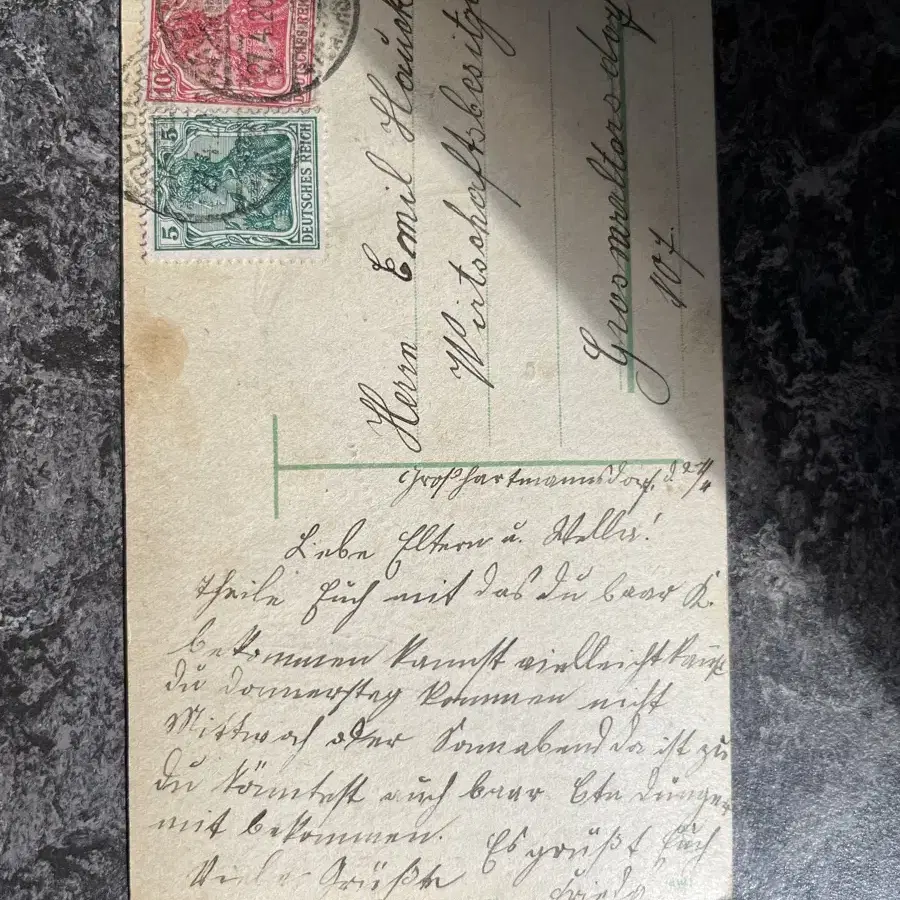 10
27.4.20
DEUTSCHES REICH
5
5
DEUTSCHES REICH
Herrn Emil Hauck
Wirtschaftsbesitze
Grosswaltersdorf
107.
Großhartmannsdorf, d. 27/4
Liebe Eltern u. !
Theile Euch mit das du baar K.
bekommen kannst vielleicht kannst
du Donnerstag kommen nicht
Mittwoch oder Sonnabend da ist zu
du könntest auch baar Ctn Dünger
mit bekommen.
Es grüßt Euch
Viele Grüße